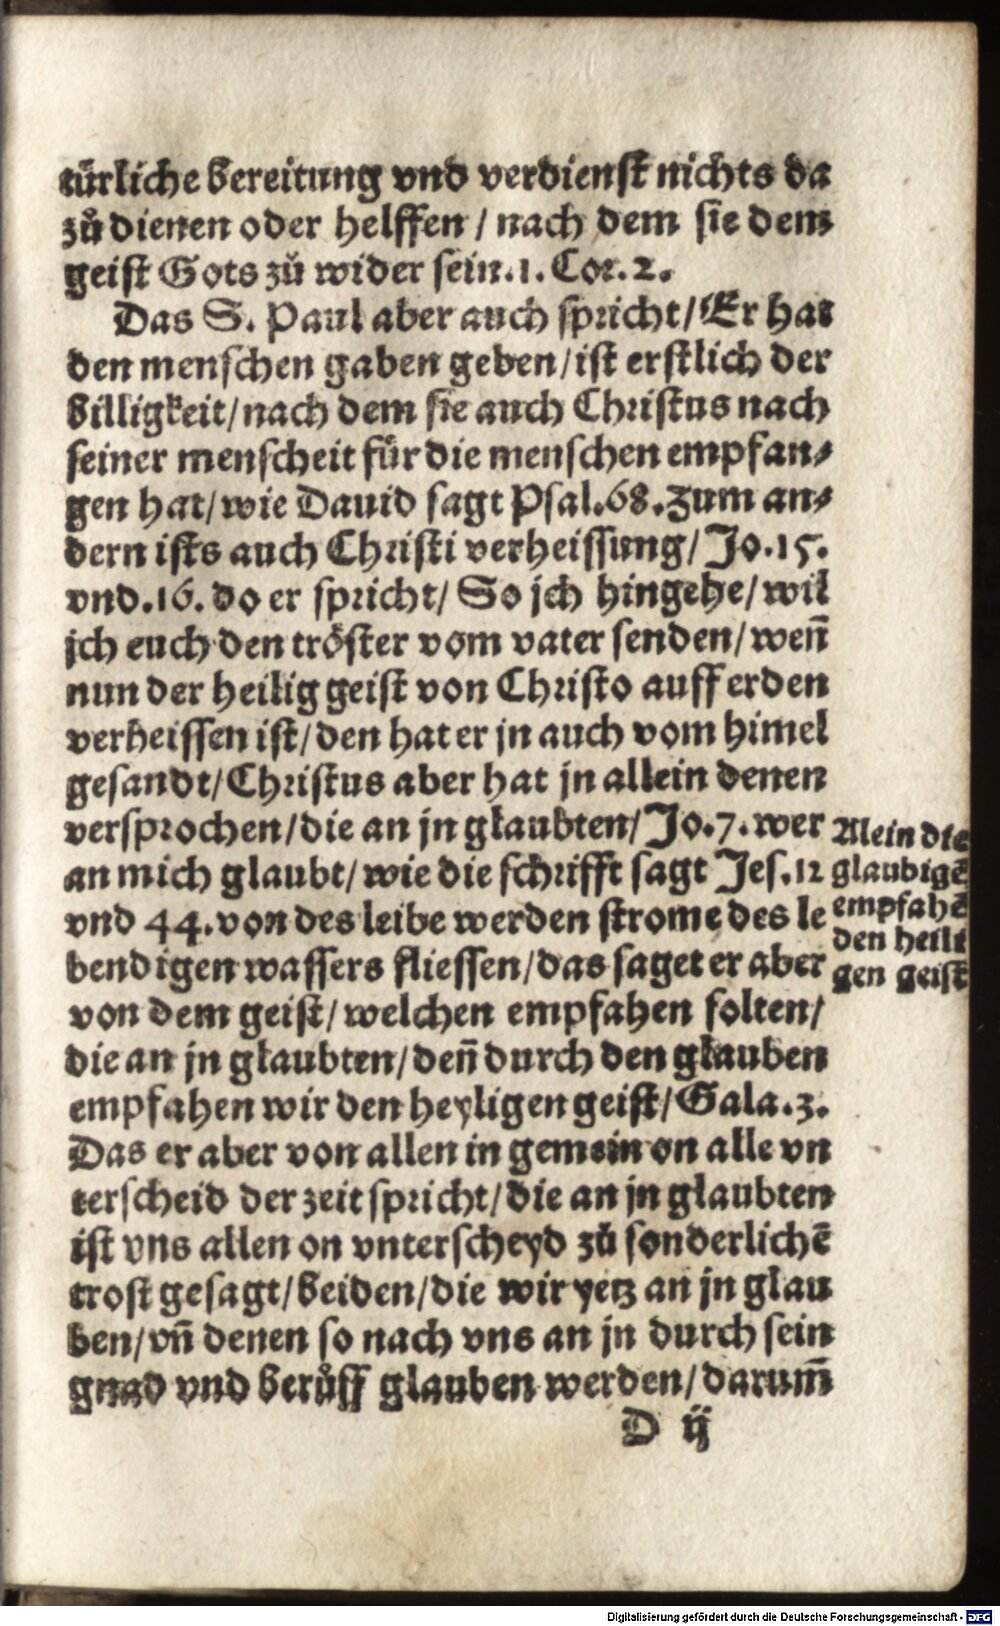 türliche bereitung vnd verdienst nichts da
zů dienen oder helffen / nach dem sie dem
geist Gots zů wider sein. 1. Cor. 2.
Das S. Paul aber auch spricht / Er hat
den menschen gaben geben / ist erstlich der
billigkeit / nach dem sie auch Christus nach
seiner menscheit für die menschen empfan⸗
gen hat / wie Dauid sagt Psal. 68. zum an⸗
dern ists auch Christi verheissung / Jo. 15.
vnd. 16. do er spricht / So jch hingehe / wil
jch euch den tröster vom vater senden / weñ
nun der heilig geist von Christo auff erden
verheissen ist / den hat er jn auch vom himel
gesandt / Christus aber hat jn allein denen
versprochen / die an jn glaubten / Jo. 7. wer
an mich glaubt / wie die schrifft sagt Jes. 12
vnd 44. von des leibe werden strome des le
bendigen wassers fliessen / das saget er aber
von dem geist / welchen empfahen solten /
die an jn glaubten / deñ durch den glauben
empfahen wir den heyligen geist / Gala. 3.
Das er aber von allen in gemein on alle vn
terscheid der zeit spricht / die an jn glaubten
ist vns allen on vnterscheyd zů sonderlichē
trost gesagt / beiden / die wir yetz an jn glau
ben / vñ denen so nach vns an jn durch sein
gnad vnd berůff glauben werden / darum̃
D ij
Alein die
glaubigē
empfahē
den heili
gen geist
Digitalisierung gefördert durch die Deutsche Forschungsgemeinschaft - DFG